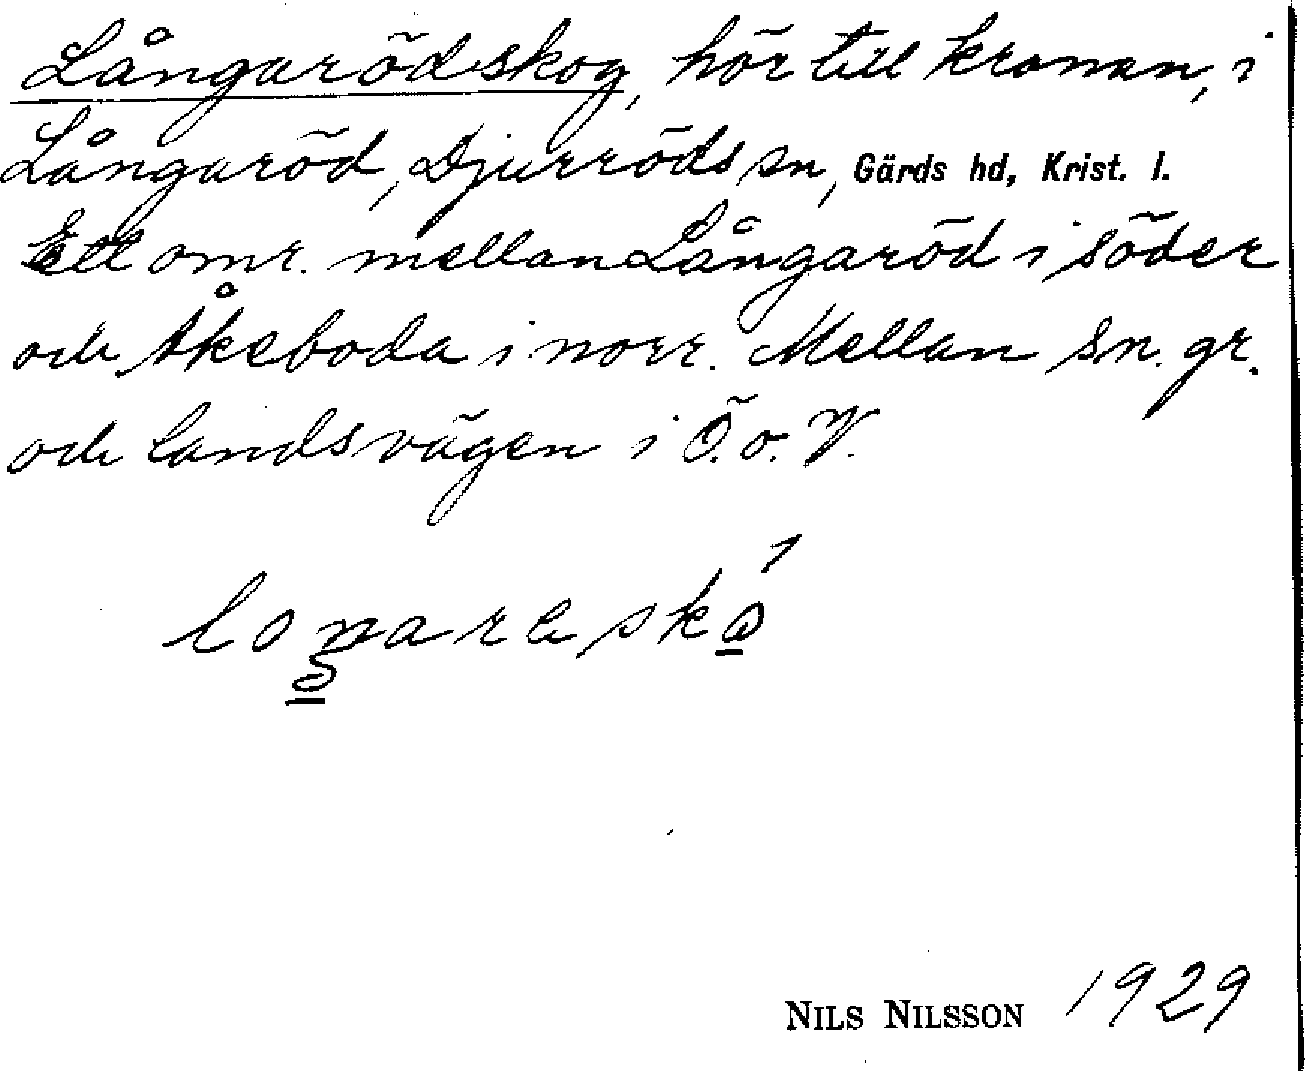 Långarödskog, hör till kronan, i
Långaröd, Djurröds sn, Gärds hd, Krist. l.
Ett omr. mellan Långaröd i söder
och Åkeboda i norr. Mellan sn. gr.
och landsvägen i Ö. o. V.
NILS NILSSON 1929